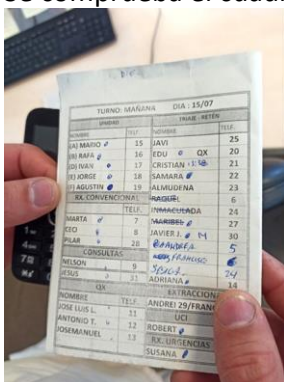 TURNO: MAÑANA DIA: 15/07
NOMBRE TELF. NOMBRE TELF.
(A) MARIO 15 JAVI 25
(B) RAFA 16 EDU QX 20
(D) IVAN 17 CRISTIAN 21
(E) JORGE 18 SAMARA 22
(F) AGUSTIN 19 ALMUDENA 23
RX. CONVENCIONAL RAQUEL 6
TELF. INMACULADA 24
MARTA 7 MARIBEL 27
CECI 8 JAVIER J. M 30
PILAR 28 5
CONSULTAS FRANCISCO 6
NELSON 9 24
JESUS 31 ADRIANA 14
QX EXTRACCION
NOMBRE TELF. ANDREI 29/FRANC
JOSE LUIS L. 11 UCI
ANTONIO T. 12 ROBERT
JOSEMANUEL 13 RX. URGENCIAS
SUSANA